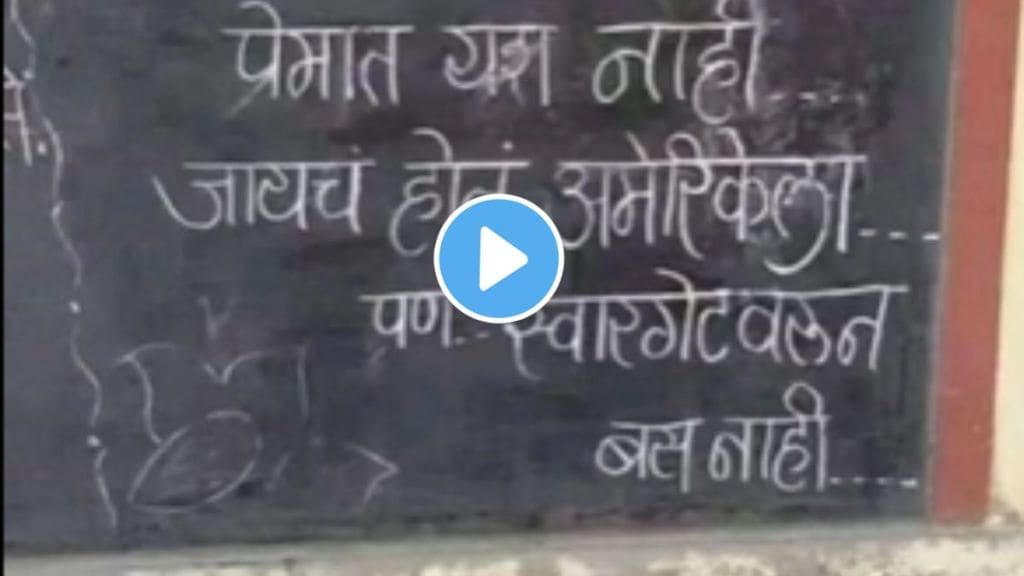 प्रेमात यश नाही....
जायचं होतं अमेरिकेला....
पण.. स्वारगेटवरून
बस नाही....